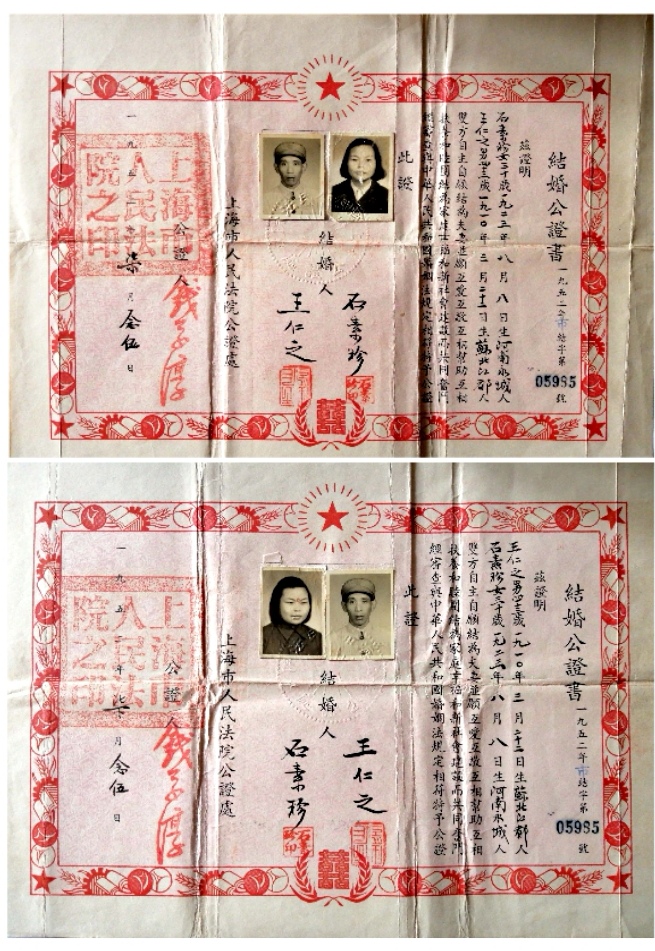 結婚公證書
一九五二年市結字第
05985
號
茲證明
石素珍女三十歲一九二三年八月八日生河南永城人
王仁之男四三歲一九一〇年三月二十二日生蘇北江都人
雙方自主自願結為夫妻並願互愛互敬互相幫助互相
扶養和睦團結為家庭幸福和新社會建設而共同奮鬥
經審查與中華人民共和國婚姻法規定相符特予公證
此證
結婚人
石素珍
王仁之
囍
上海市人民法院公證處
公證人
上海市人民法院之印
一九五二年柒月念伍日
結婚公證書
一九五二年市結字第
05985
號
茲證明
王仁之男四三歲一九一〇年三月二十二日生蘇北江都人
石素珍女三十歲一九二三年八月八日生河南永城人
雙方自主自願結為夫妻並願互愛互敬互相幫助互相
扶養和睦團結為家庭幸福和新社會建設而共同奮鬥
經審查與中華人民共和國婚姻法規定相符特予公證
此證
結婚人
王仁之
石素珍
囍
上海市人民法院公證處
公證人
上海市人民法院之印
一九五二年柒月念伍日